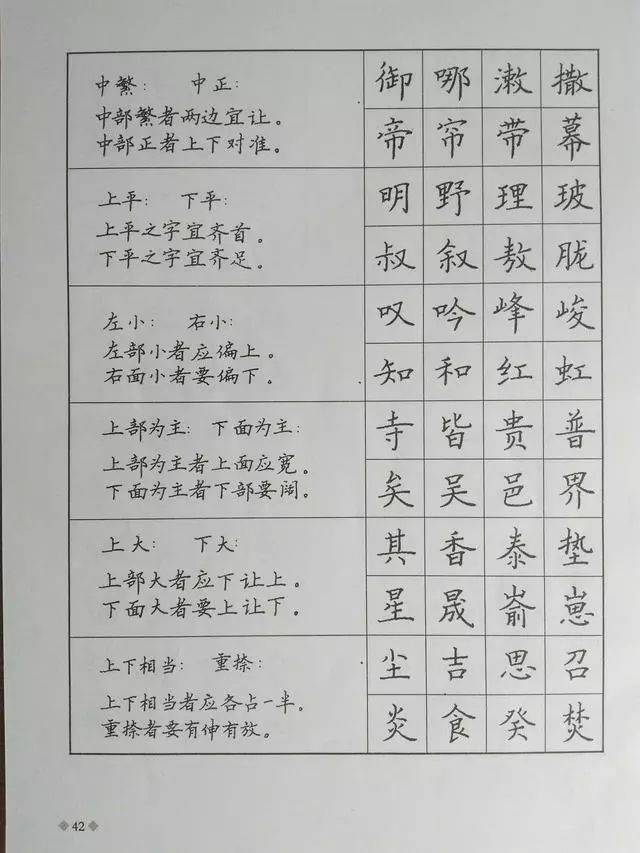 中繁： 中正：
中部繁者两边宜让。
中部正者上下对准。
御 哪 漱 撒
帝 帘 带 幕
上平： 下平：
上平之字宜齐首。
下平之字宜齐足。
明 野 理 玻
叔 叙 敖 胧
左小： 右小：
左部小者应偏上。
右面小者要偏下。
叹 吟 峰 峻
知 和 红 虹
上部为主： 下面为主：
上部为主者上面应宽。
下面为主者下部要阔。
寺 皆 贵 普
矣 吴 邑 界
上大： 下大：
上部大者应下让上。
下面大者要上让下。
其 香 泰 垫
星 晟 嵛 崽
上下相当： 重捺：
上下相当者应各占一半。
重捺者要有伸有放。
尘 吉 思 召
炎 食 癸 焚
42